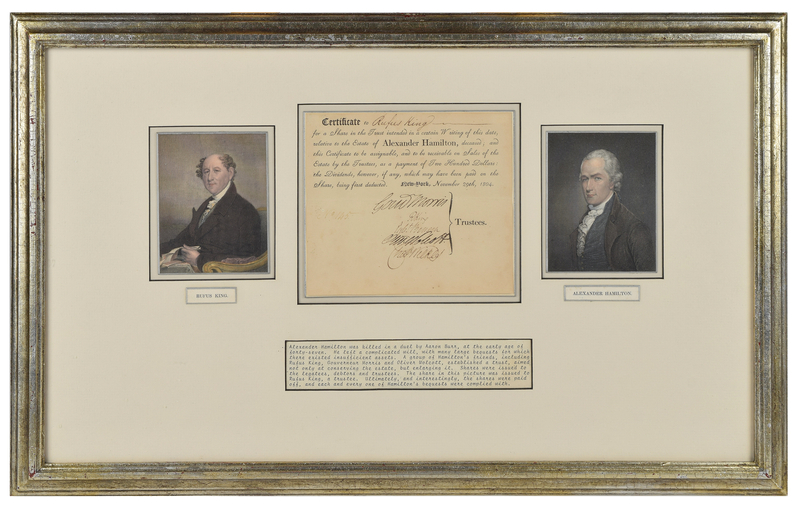 Certificate to Rufus King
for a Share in the Trust intended in a certain Writing of this date,
relative to the Estate of Alexander Hamilton, deceased, and
this Certificate to be assignable, and to be receivable on Sales of the
Estate by the Trustees, as a payment of Two Hundred Dollars
the Dividends, however, if any, which may have been paid on the
Share, being first deducted. New-York, November 29th, 1804.
Gouv Morris
Oliv Wolcott
Trustees.
RUFUS KING.
ALEXANDER HAMILTON.
Alexander Hamilton was killed in a duel by Aaron Burr, at the early age of
forty-seven. He left a complicated will, with many large bequests for which
there existed insufficient assets. A group of Hamilton's friends, including
Rufus King, Gouverneur Morris and Oliver Wolcott, established a trust, aimed
not only at conserving the estate, but enlarging it. Shares were issued to
the legatees, debtors and trustees. The share in this picture was issued to
Rufus King, a trustee. Ultimately, and interestingly, the shares were paid
off, and each and every one of Hamilton's bequests were complied with.